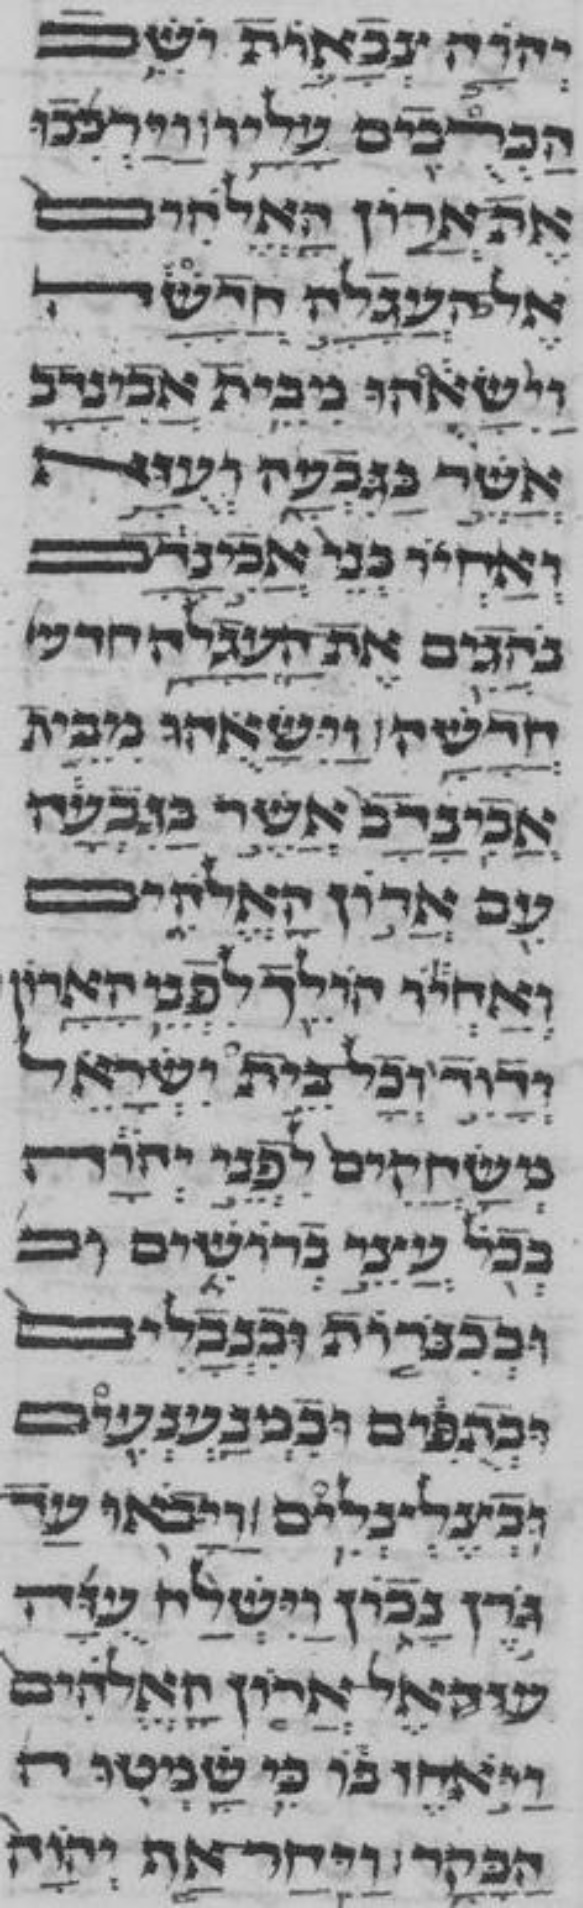 יְהוָֹה צְבָאוֹת יֹשֵׁב
הַכְּרֻבִים עָלָיו׃ וַיַּרְכִּבוּ
אֶת אֲרוֹן הָאֱלֹהִים
אֶל הָעֲגָלָה חֲדָשָׁה
וַיִּשָּׂאֻהוּ מִבֵּית אֲבִינָדָב
אֲשֶׁר בַּגִּבְעָה וְעֻזָּא
וְאַחְיוֹ בְּנֵי אֲבִינָדָב
נֹהֲגִים אֶת הָעֲגָלָה חדש
חֲדָשָׁה׃ וַיִּשָּׂאֻהוּ מִבֵּית
אֲבִינָדָב אֲשֶׁר בַּגִּבְעָה
עִם אֲרוֹן הָאֱלֹהִים
וְאַחְיוֹ הוֹלֵךְ לִפְנֵי הָאָרוֹן
וְדָוִד וְכָל בֵּית יִשְׂרָאֵל
מְשַׂחֲקִים לִפְנֵי יְהוָה
בְּכֹל עֲצֵי בְרוֹשִׁים וב
וּבְכִנֹּרוֹת וּבִנְבָלִים
וּבְתֻפִּים וּבִמְנַעַנְעִים
וּבְצֶלְצְלִים׃ וַיָּבֹאוּ עַד
גֹּרֶן נָכוֹן וַיִּשְׁלַח עֻזָּה
עזה אֶל אֲרוֹן הָאֱלֹהִים
וַיֹּאחֶז בּוֹ כִּי שָׁמְטוּ ה
הַבָּקָר׃ וַיִּחַר אַף יְהוָה